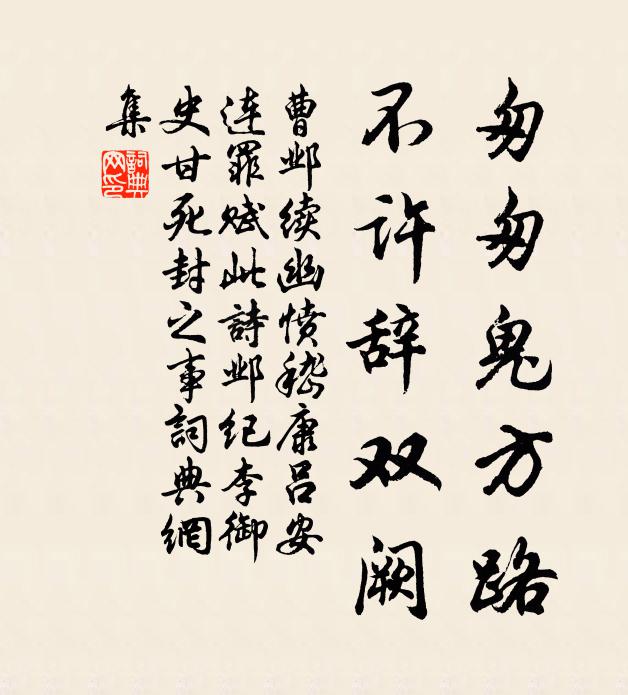 匆匆鬼方路
不许辞双阙
曹邺续幽愤嵇康吕安
连罪赋此詩邺纪李御
史甘死封之事詞典網
集
詞典網印